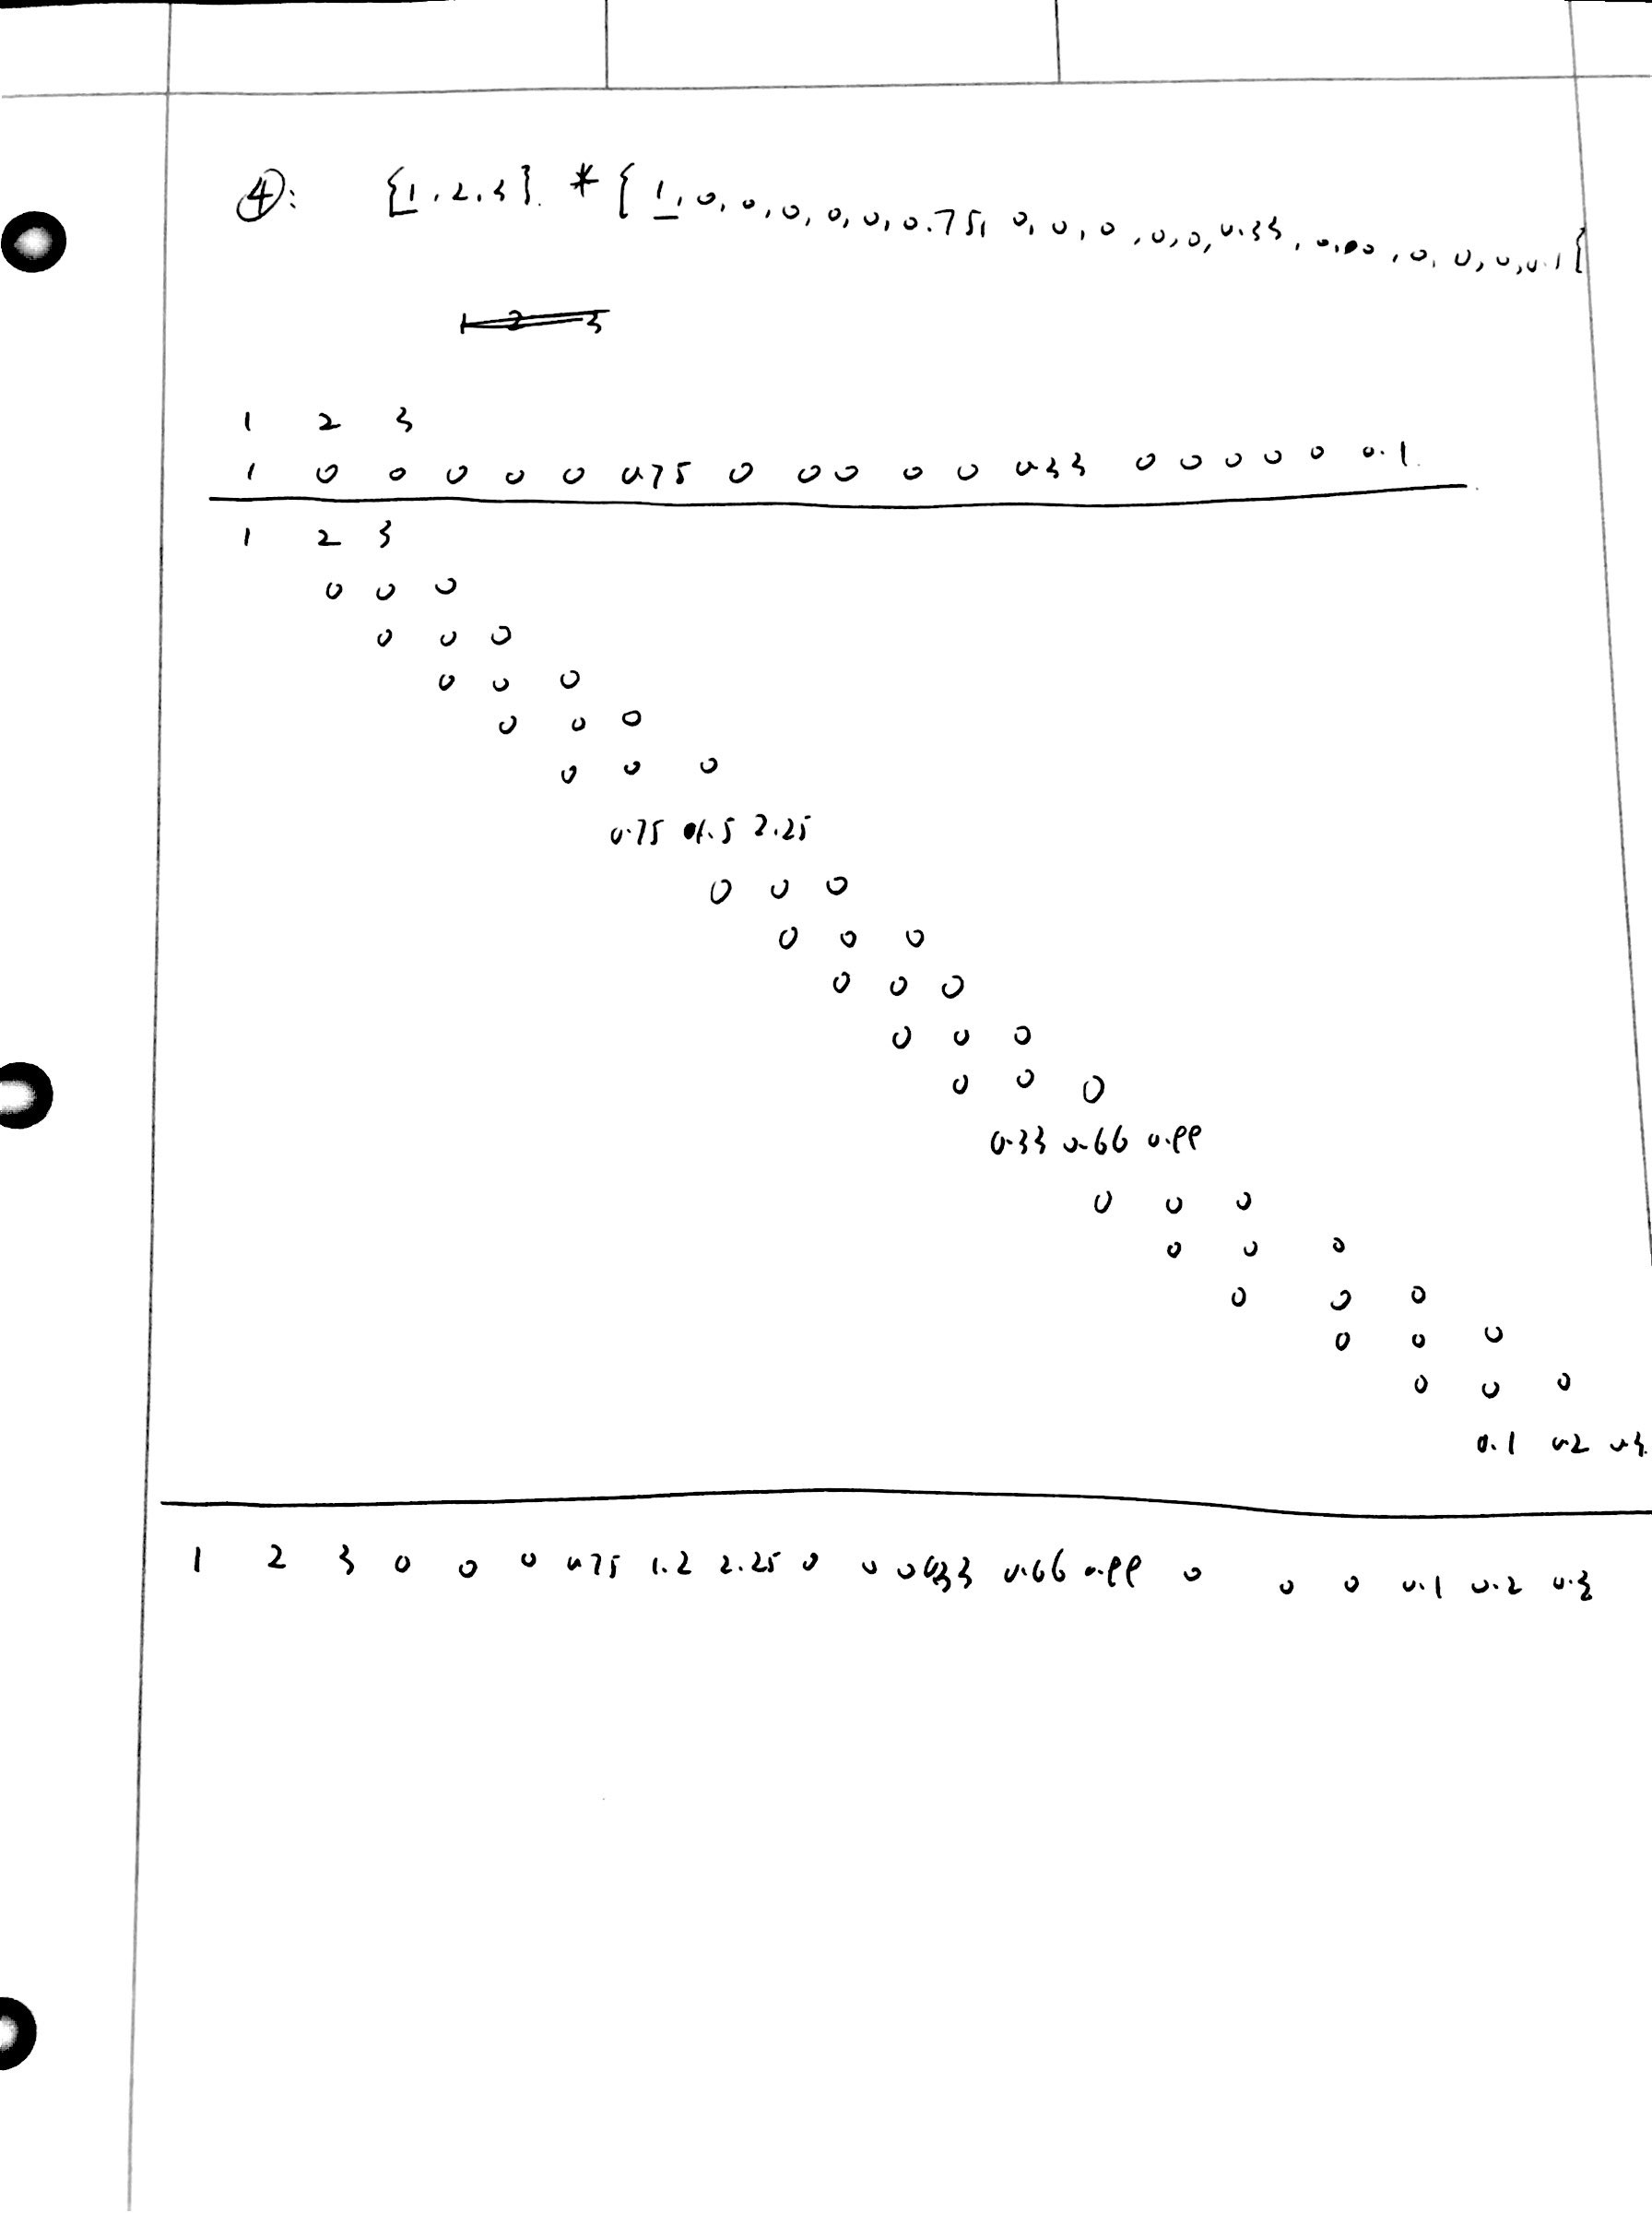 ④: {1, 2, 3} * {1, 0, 0, 0, 0, 0, 0.75, 0, 0, 0, 0, 0, 0.33, 0, 0, 0, 0, 0, 0.1}
1 2 3
1 2 3
1 0 0 0 0 0 0.75 0 0 0 0 0 0.33 0 0 0 0 0 0.1
1 2 3
0 0 0
0 0 0
0 0 0
0 0 0
0 0 0
0.75 1.5 2.25
0 0 0
0 0 0
0 0 0
0 0 0
0 0 0
0.33 0.66 0.99
0 0 0
0 0 0
0 0 0
0 0 0
0 0 0
0.1 0.2 0.3
1 2 3 0 0 0 0.75 1.2 2.25 0 0 0 0.33 0.66 0.99 0 0 0 0.1 0.2 0.3